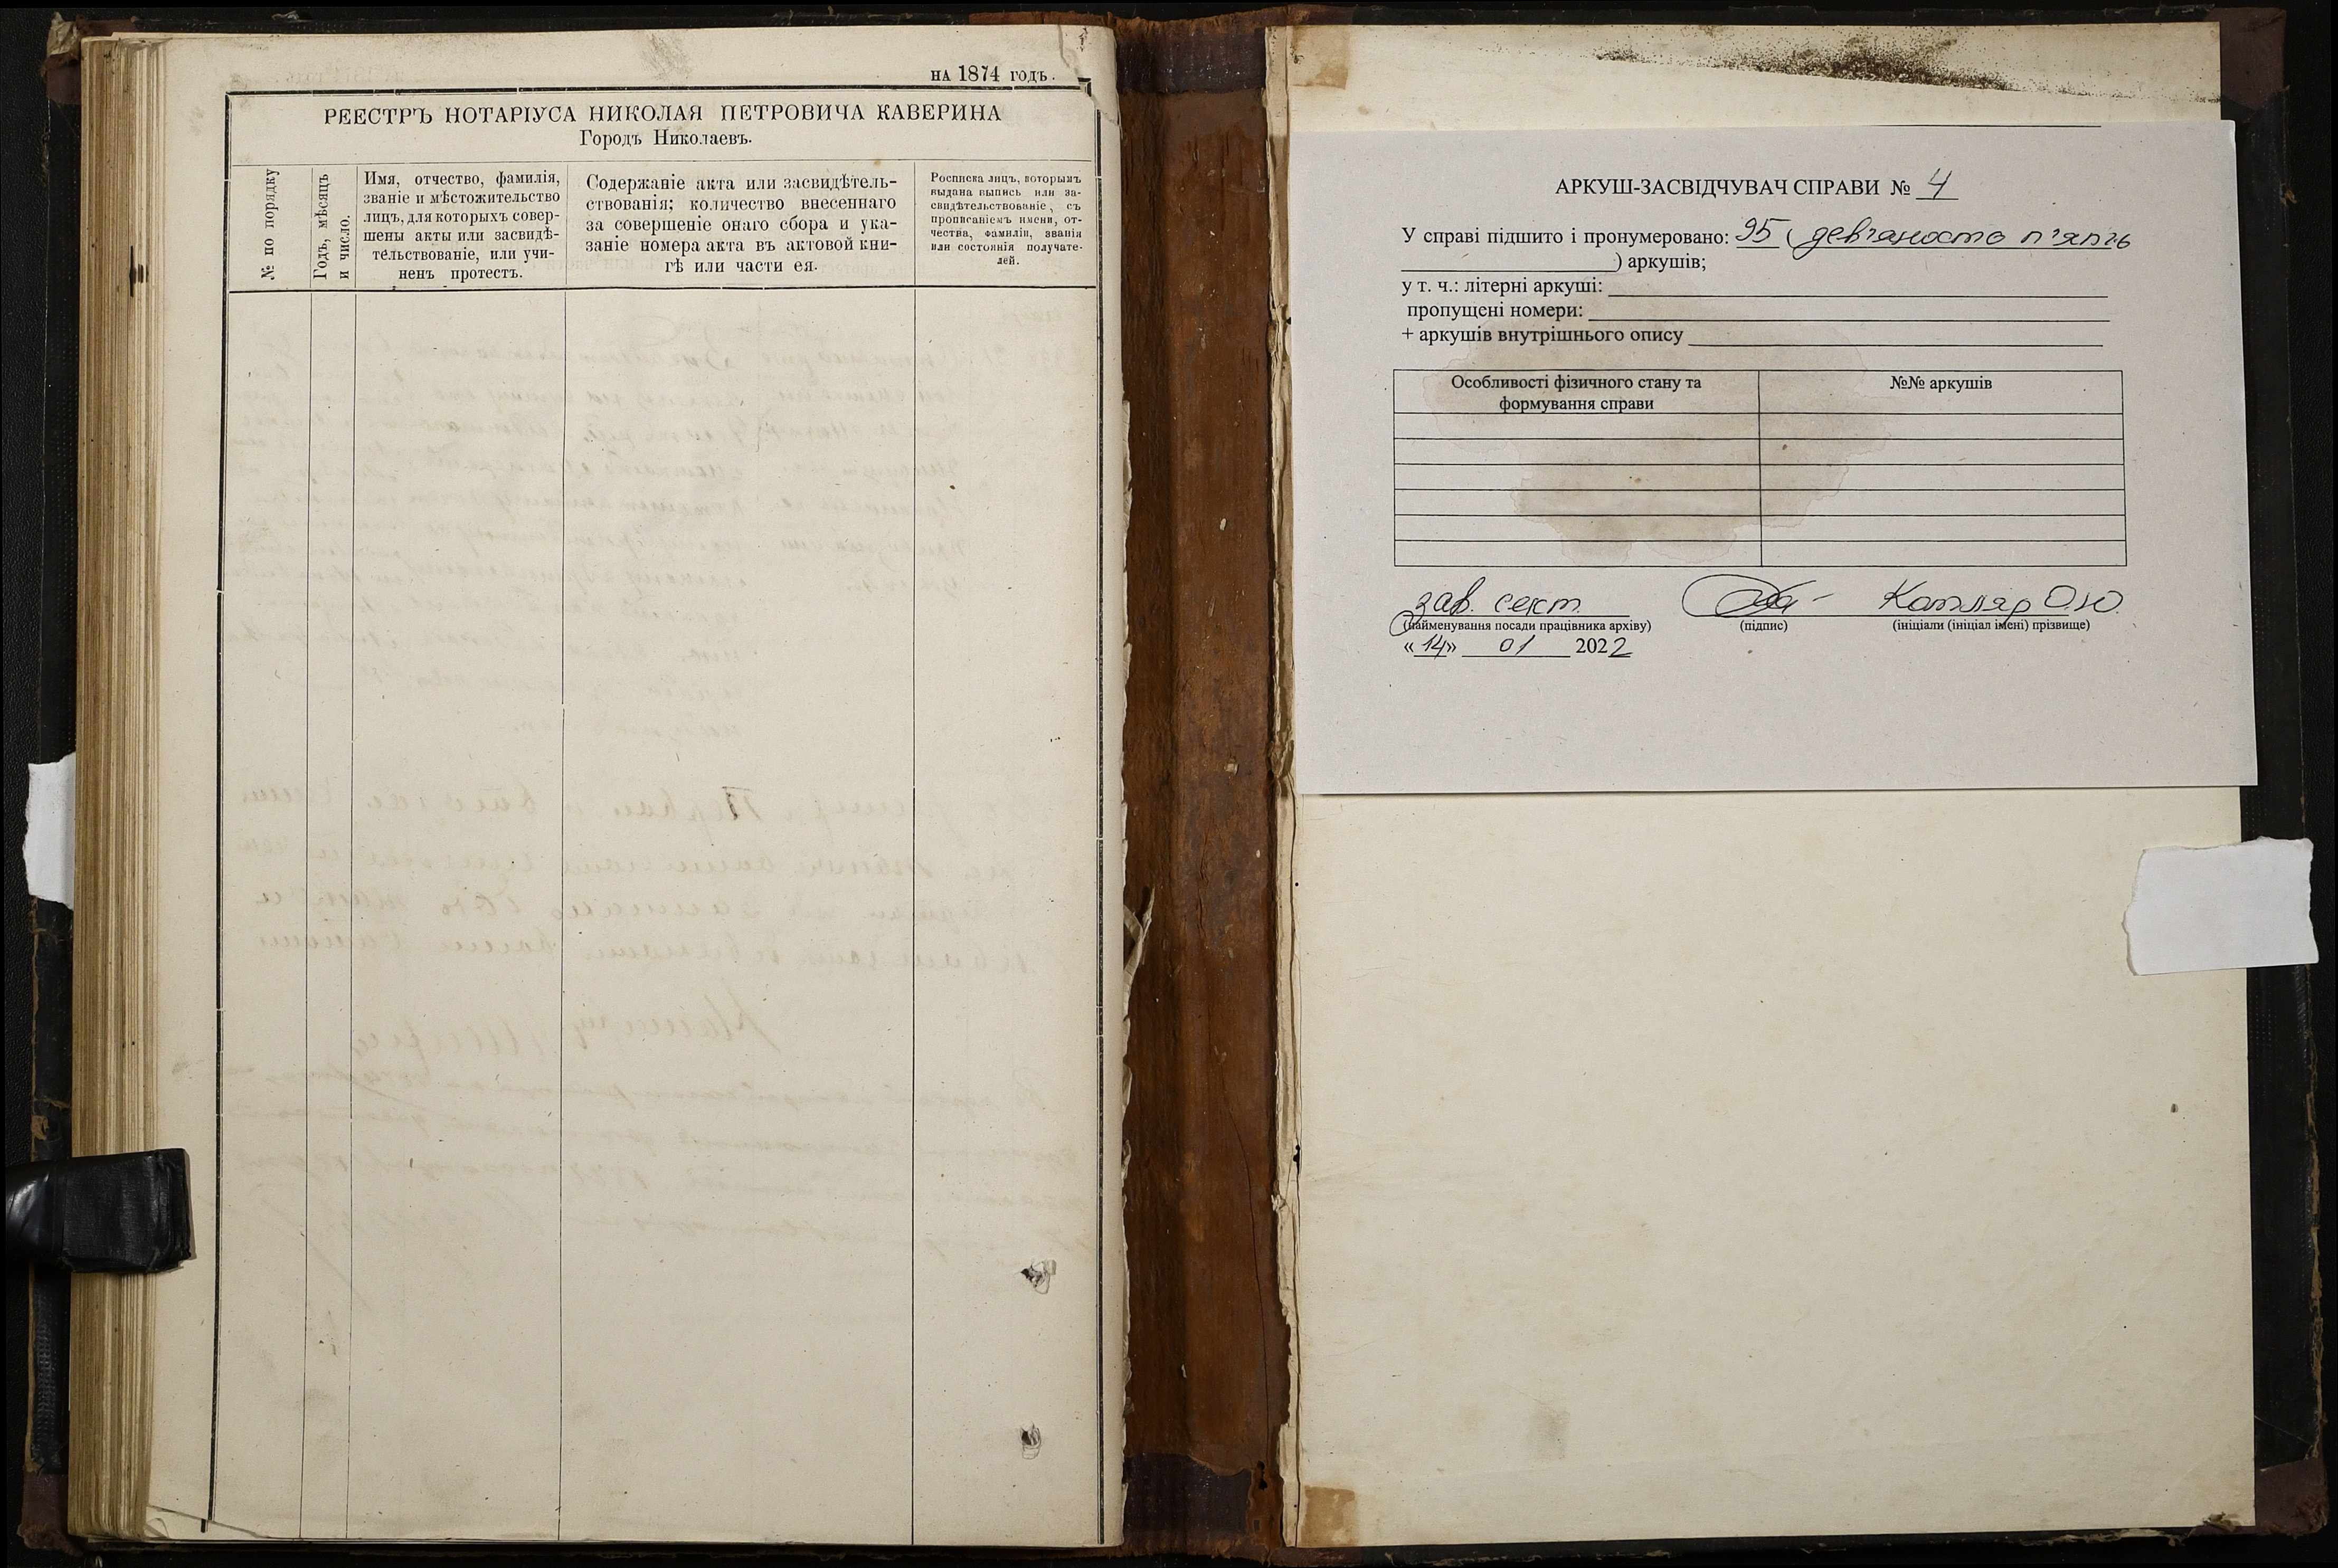 НА 1874 ГОДЪ.
РЕЕСТРЪ НОТАРІУСА НИКОЛАЯ ПЕТРОВИЧА КАВЕРИНА
Городъ Николаевъ.
№ по порядку
Годъ, мѣсяцъ
и число.
Имя, отчество, фамилія,
званіе и мѣстожительство
лицъ, для которыхъ совер-
шены акты или засвидѣ-
тельствованіе, или учи-
ненъ протестъ.
Содержаніе акта или засвидѣтель-
ствованія; количество внесеннаго
за совершеніе онаго сбора и ука-
заніе номера акта въ актовой кни-
гѣ или части ея.
Росписка лицъ, которымъ
выдана выпись или за-
свидѣтельствованіе, съ
прописаніемъ имени, от-
чества, фамиліи, званія
или состоянія получате-
лей.
АРКУШ-ЗАСВІДЧУВАЧ СПРАВИ № 4
У справі підшито і пронумеровано: 95 (дев'яносто п'ять
) аркушів;
у т. ч.: літерні аркуші:
пропущені номери:
+ аркушів внутрішнього опису
Особливості фізичного стану та
формування справи
№№ аркушів
зав. сект. Котляр О.Ю.
(найменування посади працівника архіву) (підпис) (ініціали (ініціал імені) прізвище)
«14» 01 2022